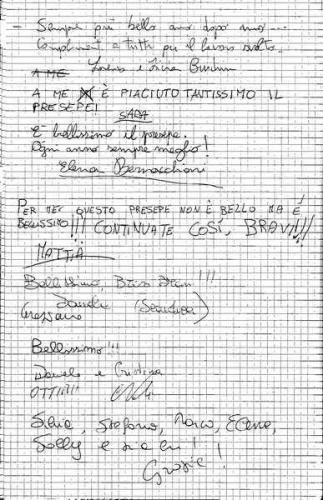 - Sempre più bello anno dopo anno...
Complimenti a tutti per il lavoro svolto.
A ME Lorena e Luca
A ME È PIACIUTO TANTISSIMO IL
PRESEPE!
SARA
E' bellissimo il presepe.
Ogni anno sempre meglio!
Elena Bernacchioni
PER ME QUESTO PRESEPE NON È BELLO MA È
BELLISSIMO!!! CONTINUATE COSÌ, BRAVI!!!
MATTIA
Bellissimo, !!!
Bellissimo!!!
Daniele e Cristina
OTTIMI!
Silvia, Stefano, Marco, Elena,
Solly e
Grazie!